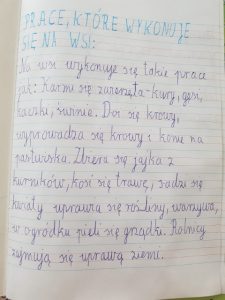 PRACE, KTÓRE WYKONUJE
SIĘ NA WSI:
Na wsi wykonuje się takie prace
jak: Karmi się zwierzęta-kury, gęsi,
kaczki, świnie. Doi się krowy,
wyprowadza się krowy i konie na
pastwiska. Zbiera się jajka z
kurników, kosi się trawę, sadzi się
kwiaty uprawia się rośliny, warzywa,
w ogródku pieli się grządki. Rolnicy
zajmują się uprawą ziemi.